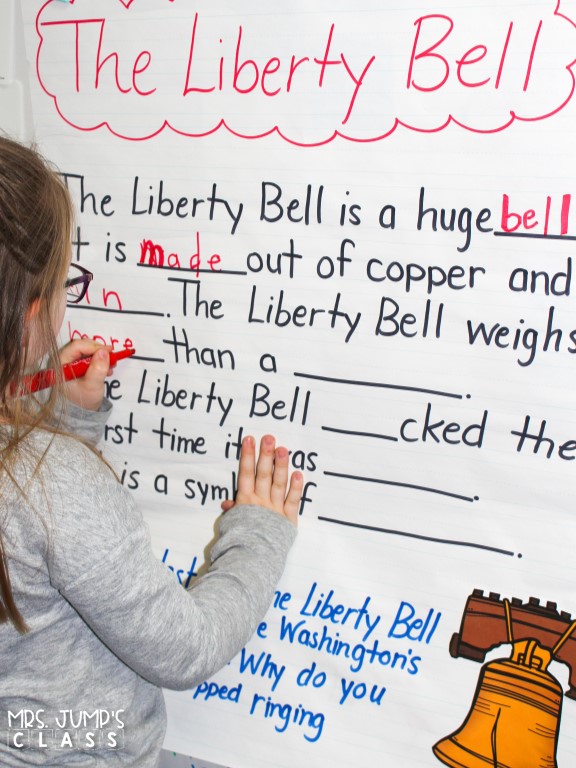 The Liberty Bell
The Liberty Bell is a huge bell
is made out of copper and
The Liberty Bell weighs
more than a ______.
Liberty Bell ____cked the
time ______.
is a ______.
The Liberty Bell
Washington's
Why do you
ringing
MRS. JUMP'S
CLASS